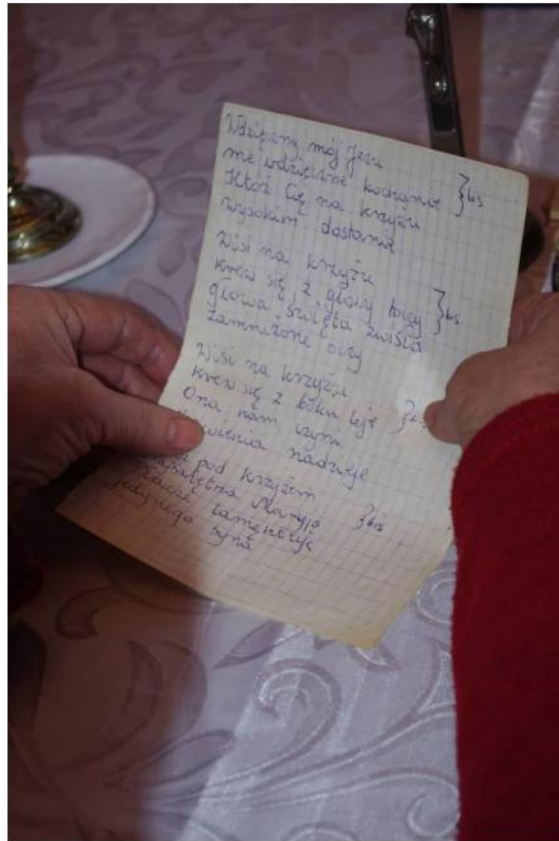 Wdzięczny mój Jezu
me wdzięczne kochanie } bis
Któż Cię na krzyżu
wysokim dostanie
Wisi na krzyżu
krew się z głowy toczy } bis
głowa święta zwisła
zamrużone oczy
Wisi na krzyżu
krew się z boku leje
Ona nam czyni
nadzieje
pod krzyżem
Maryja } bis
płacze lamentuje
jedynego syna